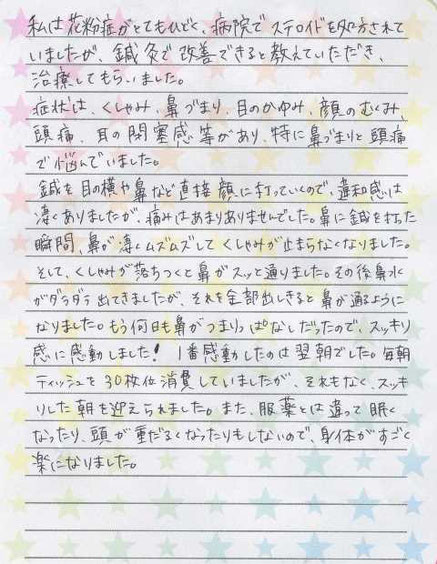 私は花粉症がとてもひどく、病院でステロイドを処方されて
いましたが、鍼灸で改善できると教えていただき、
治療してもらいました。
症状は、くしゃみ、鼻づまり、目のかゆみ、顔のむくみ、
頭痛、耳の閉塞感等があり、特に鼻づまりと頭痛
で悩んでいました。
鍼を目の横や鼻など直接顔に打っていくので、違和感は
凄くありましたが、痛みはあまりありませんでした。鼻に鍼を打った
瞬間、鼻が凄くムズムズしてくしゃみが止まらなくなりました。
そして、くしゃみが落ちつくと鼻がスッと通りました。その後鼻水
がダラダラ出てきましたが、それを全部出しきると鼻が通るように
なりました。もう何日も鼻がつまりっぱなしだったので、スッキリ
感に感動しました！1番感動したのは翌朝でした。毎朝
ティッシュを30枚位消費していましたが、それもなく、スッキ
リした朝を迎えられました。また、服薬とは違って眠く
なったり、頭が重だるくなったりもしないので、身体がすごく
楽になりました。